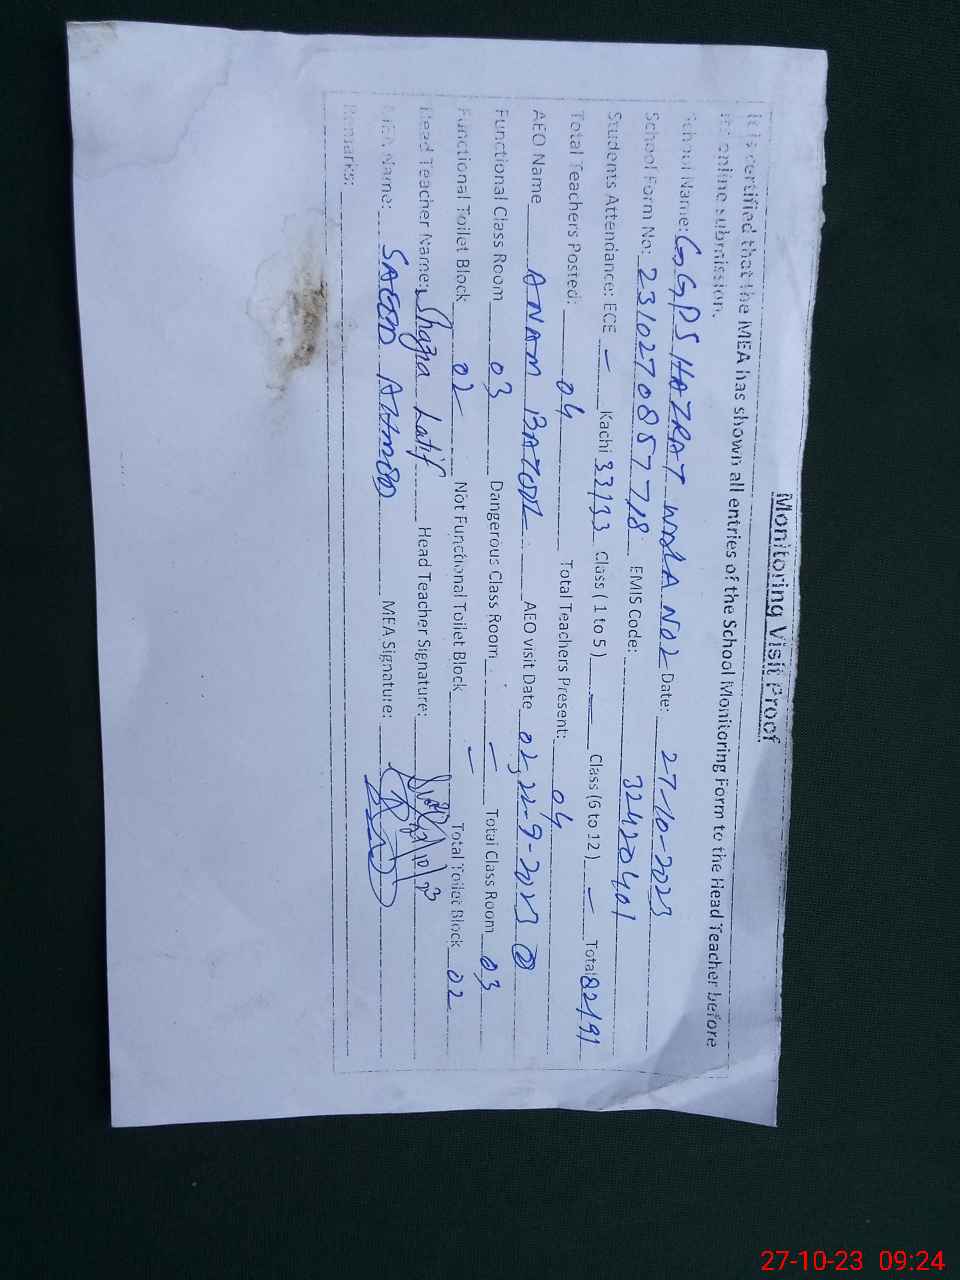 Monitoring Visit Proof
It is certified that the MEA has shown all entries of the School Monitoring Form to the Head Teacher before
its online submission.
School Name: GGPS HAZRAT WALA NO2 Date: 27-10-2023
School Form No: 2310270857718 EMIS Code: 32420401
Students Attendance: ECE - Kachi 33/33 Class ( 1 to 5 ) - Class (6 to 12 ) - Total 82/91
Total Teachers Posted: 04 Total Teachers Present: 04
AEO Name ANAM BATOOL AEO visit Date 02, 22-9-2023
Functional Class Room 03 Dangerous Class Room - Total Class Room 03
Functional Toilet Block 02 Not Functional Toilet Block - Total Toilet Block 02
Head Teacher Name: Shazia Latif Head Teacher Signature:
MEA Name: SAEED AHMED MEA Signature:
Remarks:
27-10-23 09:24